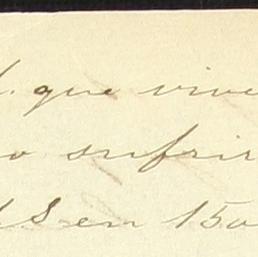 que vive
o sufrir
S en 150